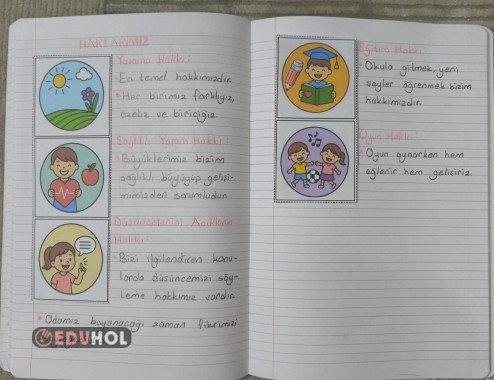 HAKLARIMIZ
Yaşama Hakkı:
• En temel hakkımızdır.
• Her birimiz farklıyız,
özeliz ve biriciğiz.
Sağlıklı Yaşama Hakkı:
• Büyüklerimiz bizim
sağlıklı büyüyüp gelişi-
mimizden sorumludur.
Düşüncelerini Açıklama
Hakkı:
• Bizi ilgilendiren konu-
larda düşüncemizi söy-
leme hakkımız vardır.
• Odamız boyanacağı zaman fikrimizi
EDUHOL
Eğitim Hakkı:
• Okula gitmek, yeni
şeyler öğrenmek bizim
hakkımızdır.
Oyun Hakkı:
• Oyun oynarken hem
eğlenir hem gelişiriz.